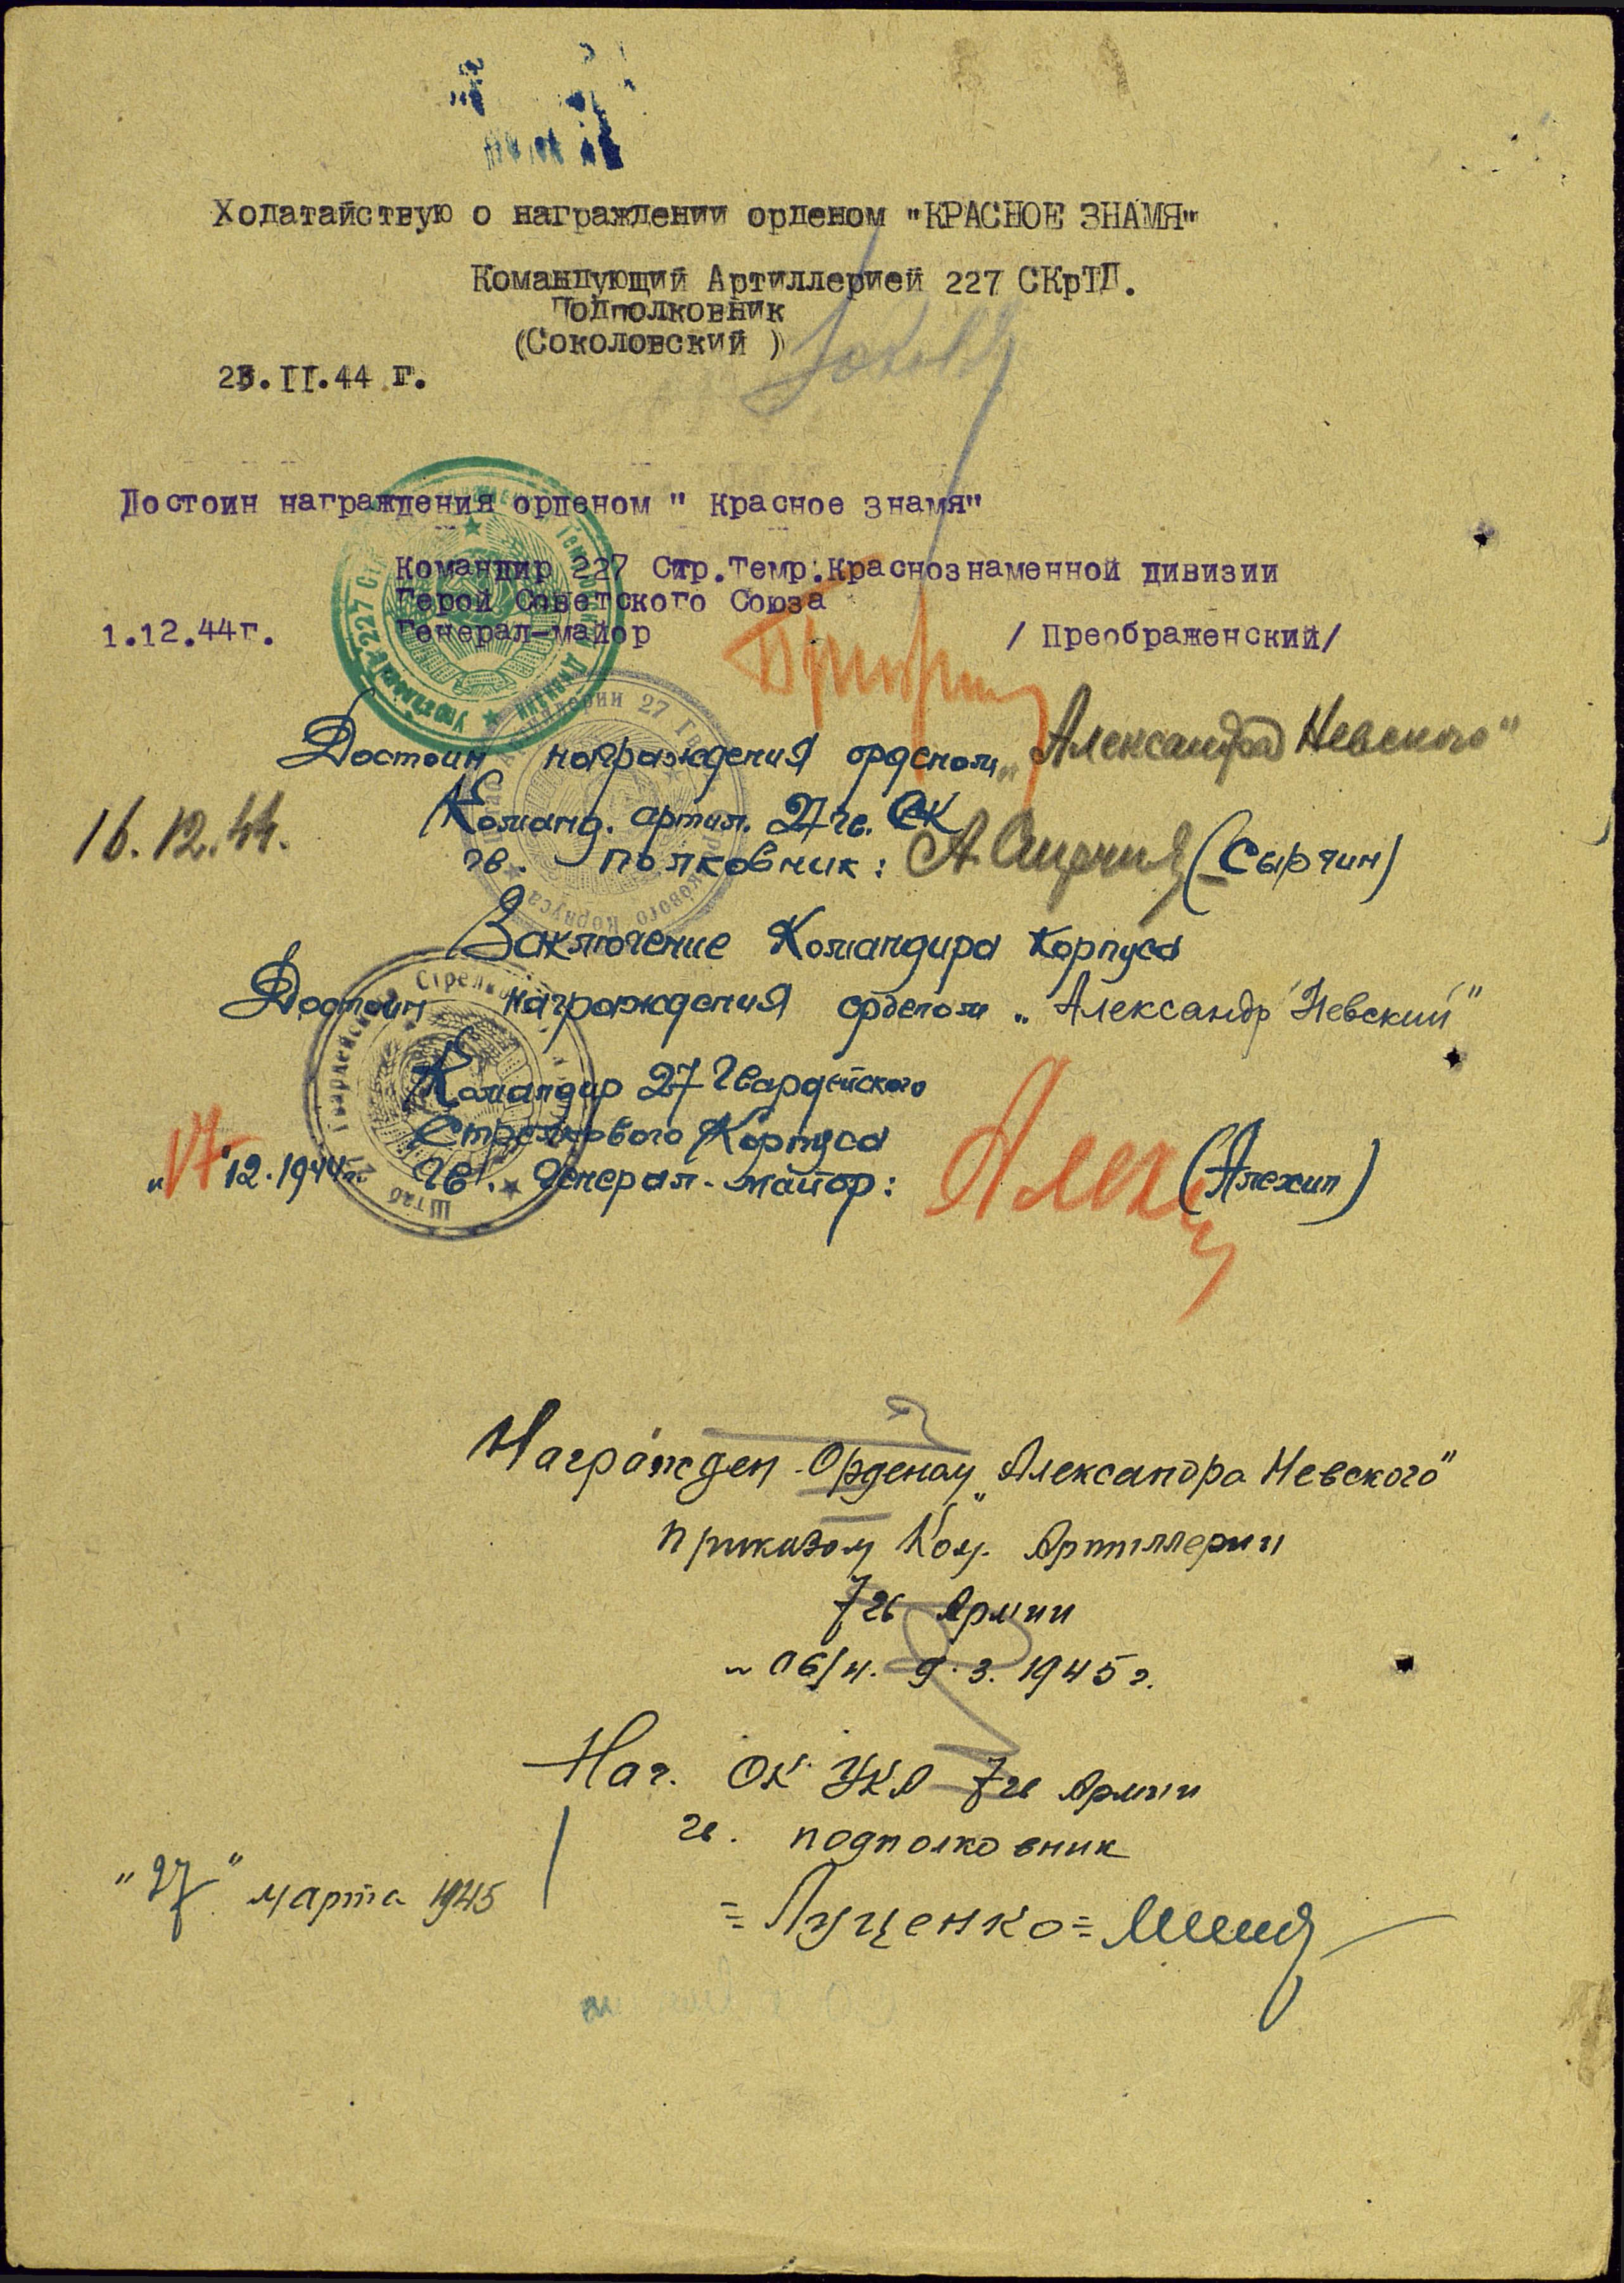 Ходатайствую о награждении орденом "КРАСНОЕ ЗНАМЯ"
Командующий Артиллерией 227 СКрТД.
Подполковник
(Соколовский )
23.II.44 г.
Достоин награждения орденом " Красное знамя"
Командир 227 Стр.Темр.Краснознаменной дивизии
Герой Советского Союза
1.12.44г. Генерал-майор / Преображенский/
Достоин награждения орденом „Александра Невского"
Команд. артил. 27 гв. СК
16.12.44. гв. полковник: (Сырчин)
Заключение Командира Корпуса
Достоин награждения орденом „Александр Невский"
Командир 27 Гвардейского
Стрелкового Корпуса
„17" 12.1944г. Гв. Генерал-майор: (Алехин)
Награжден Орденом „Александра Невского"
приказом Ком. Артиллерии
7 гв Армии
~ 06/н. 9.3.1945 г.
Нач. ОК УКА 7 гв Армии
гв. подполковник
"27" марта 1945
= Луценко =